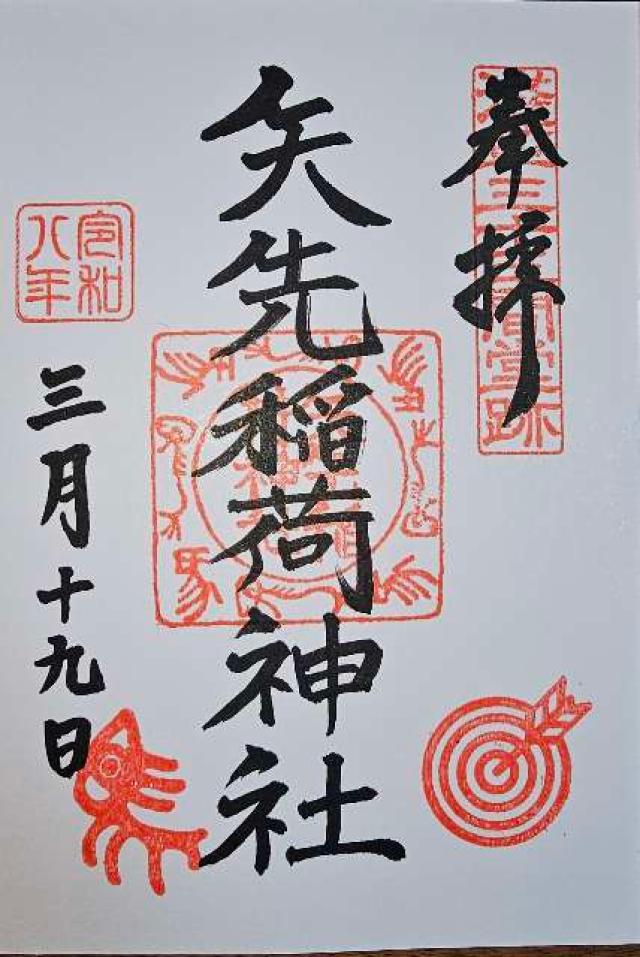 奉拝
浅草三十三間堂跡
矢先稲荷神社
令和
八年
三月十九日